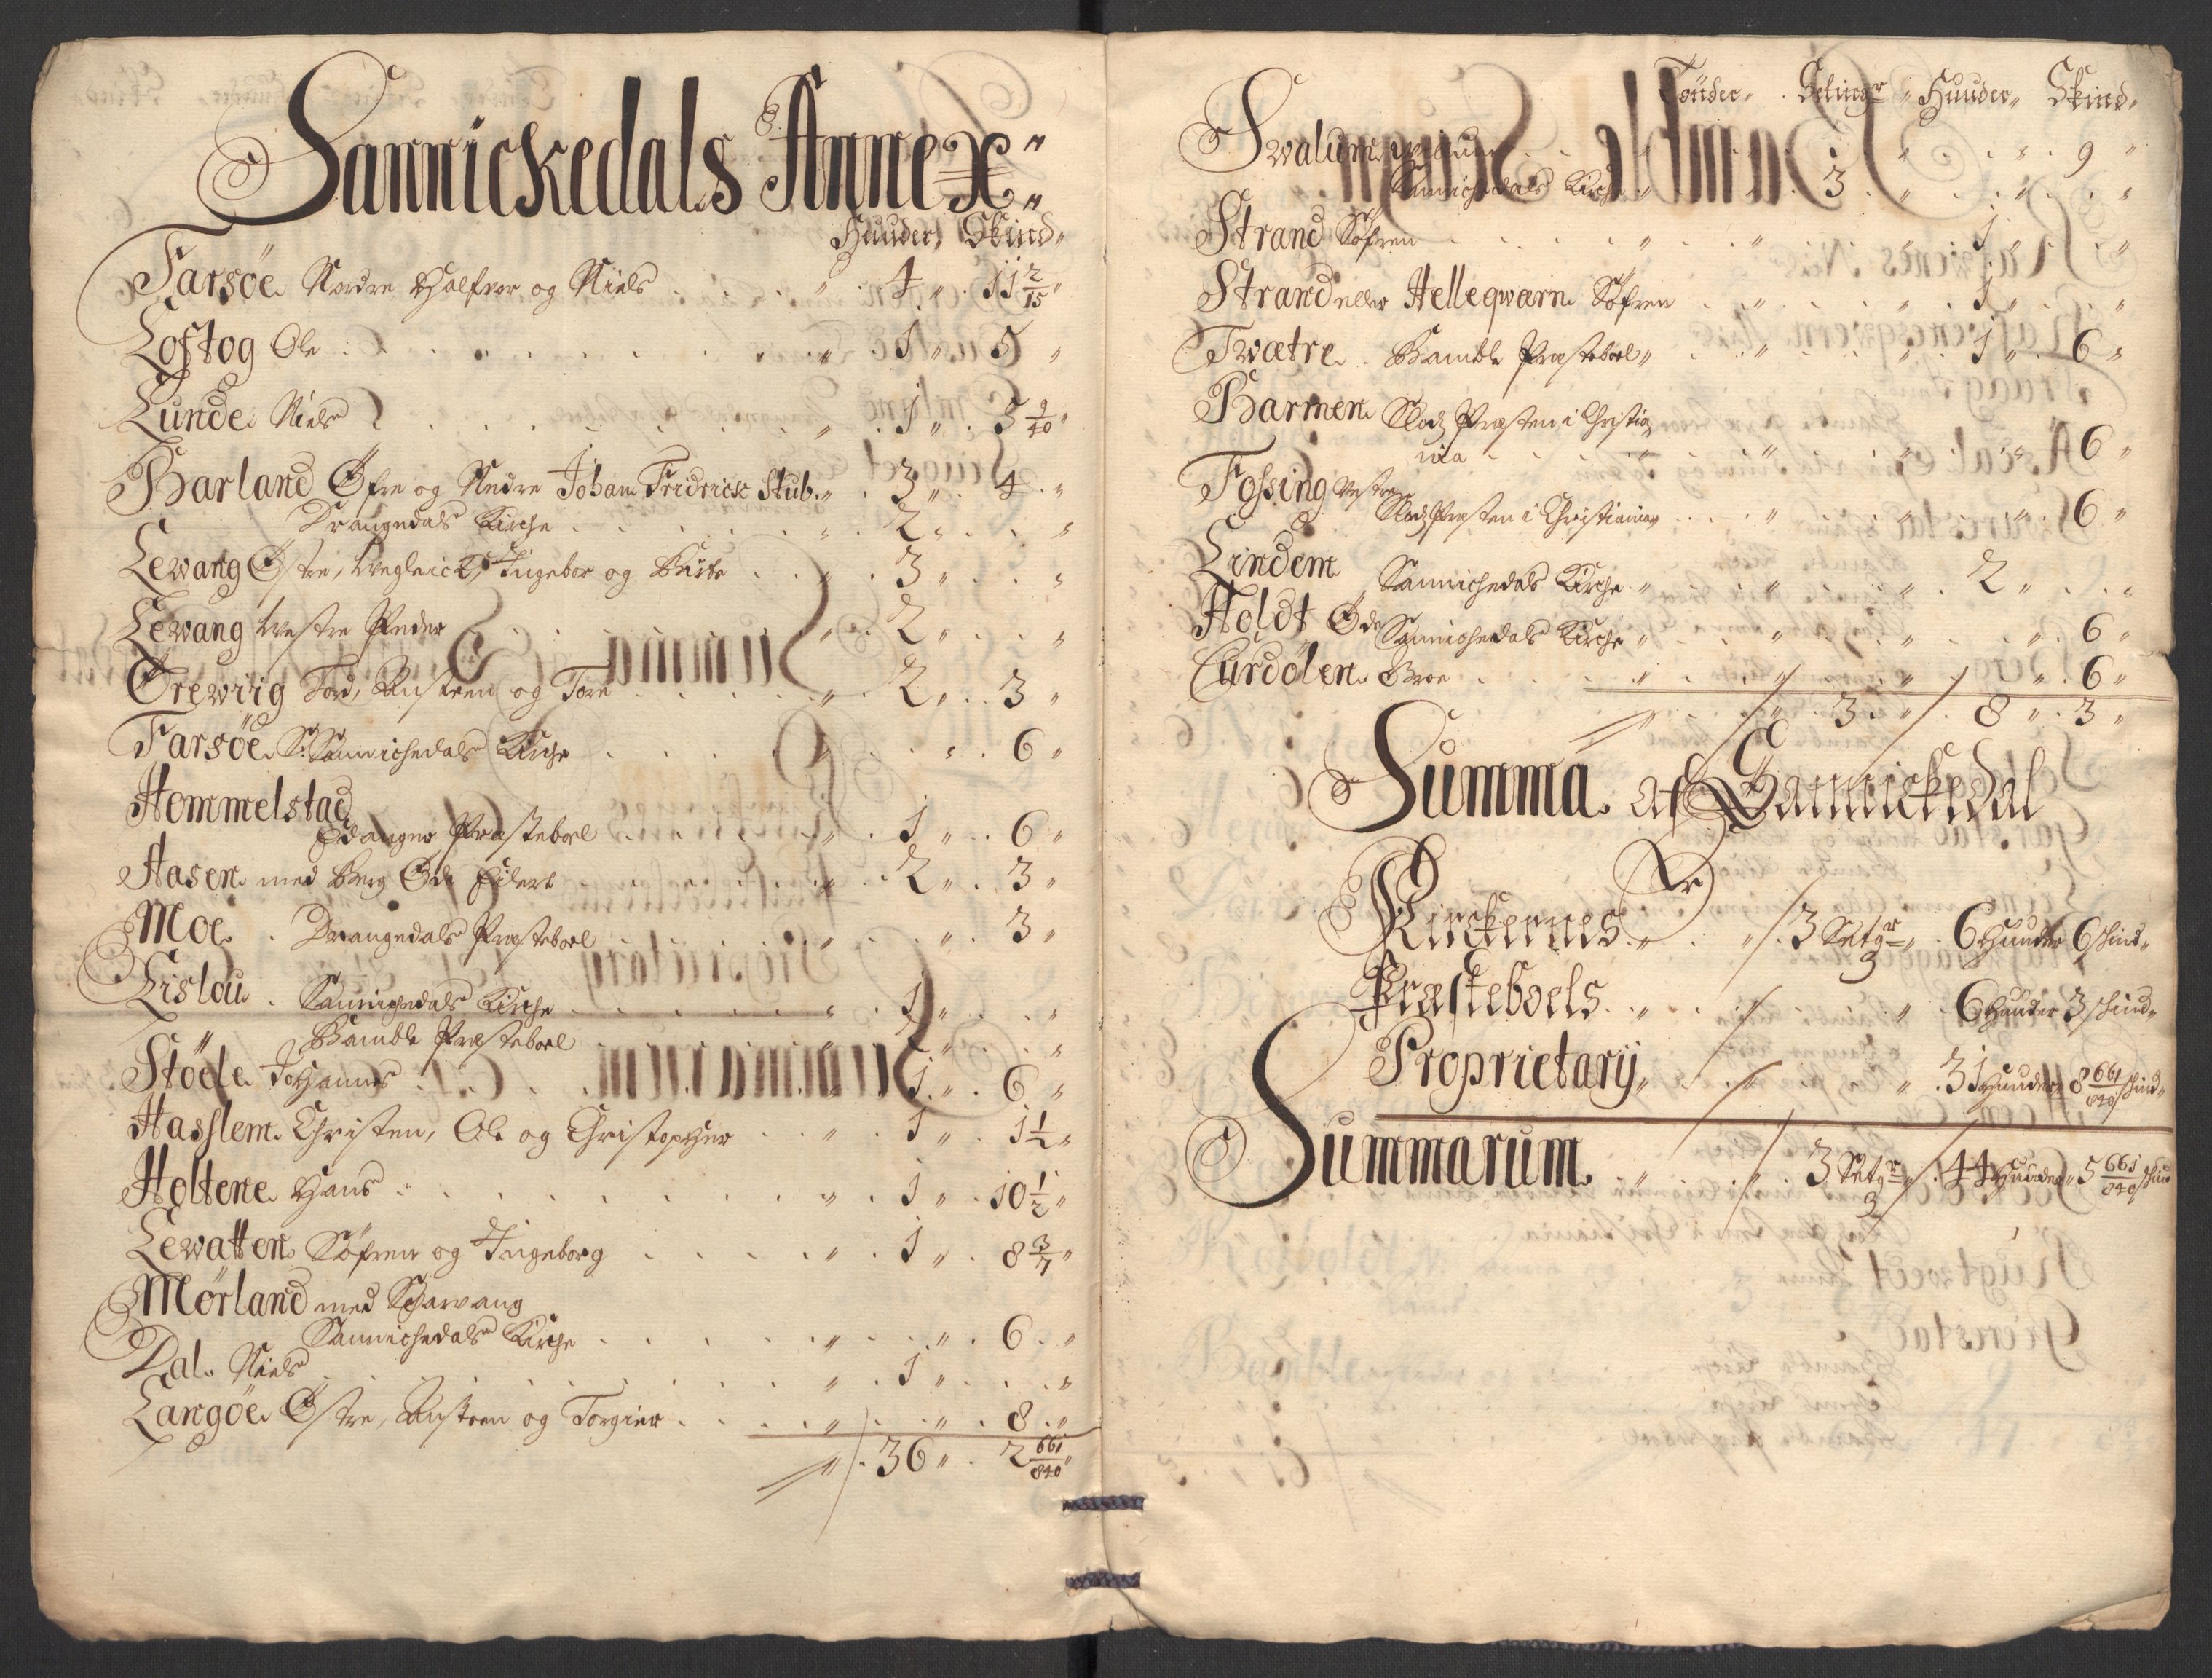 Sannickedals Annex
Huuder, Skind
Farsöe Nordre Halfvor og Niels 4 11 2/15
Loftog Ole 1 5
Lunde Niels 1 3 9/40
Barland Øfre og Nedre Johan Fridrick Stub 3 4
Drangedals Kirche 2
Lewang Østre, Ingebor og 3
Lewang Westre Peder 2
Örewiig Tord, Austeen og Tore 2 3
Farsöe S: Sannichedals Kirche 6
Hommelstad
Edanger Præsteboel 1 6
Aasen med Berg Øde Eilert 2 3
Moe Drangedals Præsteboel 3
Lislou Sannichedals Kirche 1
Bamble Præsteboel
Stöele Johannes 1 6
Hasslem Christen, Ole og Christopher 1 1 1/2
Holtene Hans 1 10 1/2
Lewatten Söfren og Ingeborg 1 8 3/7
Mörland med Scharvang
Sannichedals Kirche 6
Dal Niels 1
Langöe Østre, Austeen og Torgier 8
36 2 661/840
Tönder, Setingr Huuder, Skind
Swalum 9
Sannichedals Kirche 3
Strand Söfren 1
Strand eller Helleqwærn Söfren 1
Twætre Bamble Præsteboel 1 6
Barmen Slodz Præsten i Christia
nia 6
Fossing Westre
Slodz Præsten i Christiania 6
Lindem
Sannichedals Kirche 2
Holdt Øde Sannichedals Kirche 6
Curdölen 6
3 8 3
Summa af Sannickedal
Kirckernes 3 Setgr 6 Huuder 6 skind
Præsteboels 6 Huuder 3 skind
Proprietarij 31 Huuder 8 661/840 skind
Summarum 3 Setgr 44 Huuder 5 661/840 skind